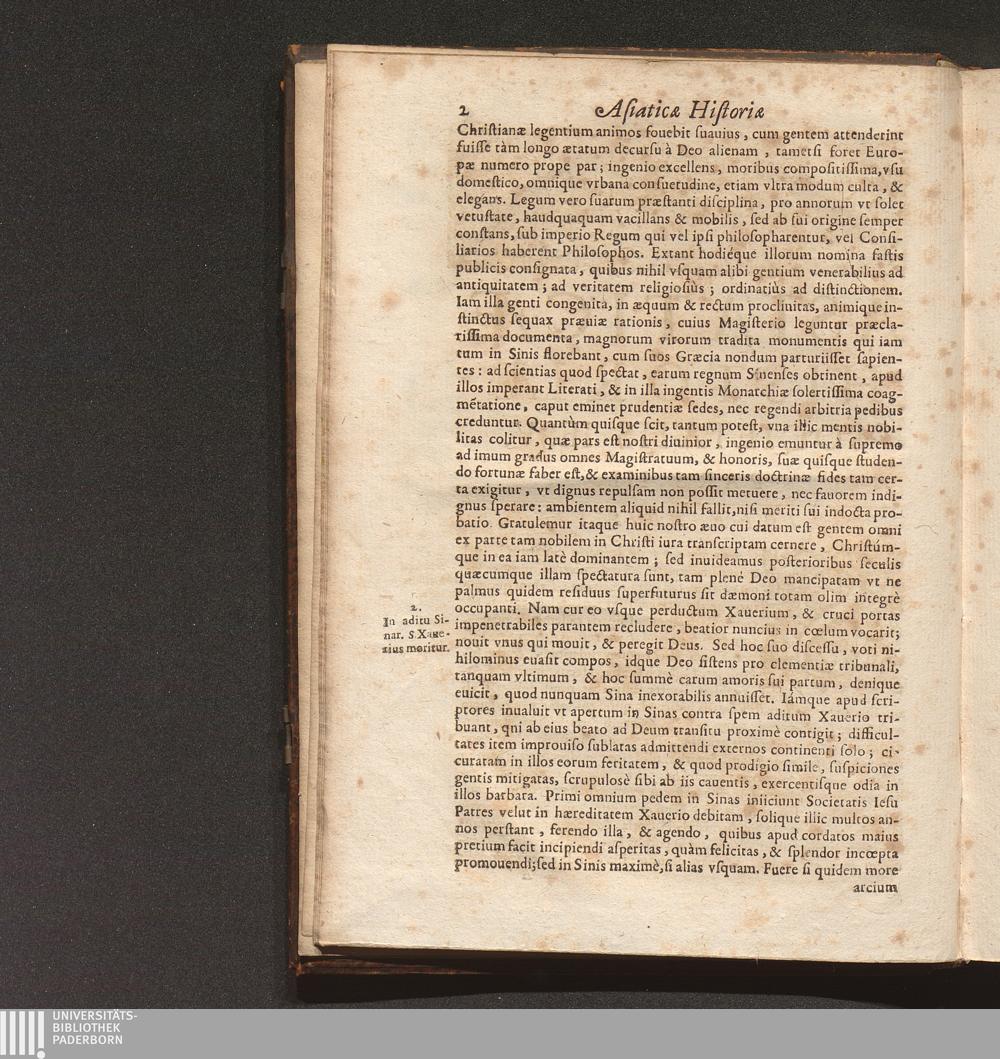 2 Aſiaticæ Hiſtoriæ
Chriſtianæ legentium animos fouebit ſuauius, cum gentem attenderint
fuiſſe tàm longo ætatum decurſu à Deo alienam, tametſi foret Euro-
pæ numero prope par; ingenio excellens, moribus compoſitiſſima, vſu
domeſtico, omnique vrbana conſuetudine, etiam vltra modum culta, &
elegans. Legum vero ſuarum præſtanti diſciplina, pro annorum vt ſolet
vetuſtate, haudquaquam vacillans & mobilis, ſed ab ſui origine ſemper
conſtans, ſub imperio Regum qui vel ipſi philoſopharentur, vel Conſi-
liarios haberent Philoſophos. Extant hodiéque illorum nomina faſtis
publicis conſignata, quibus nihil vſquam alibi gentium venerabilius ad
antiquitatem; ad veritatem religioſiùs; ordinatiùs ad diſtinctionem.
Iam illa genti congenita, in æquum & rectum procliuitas, animique in-
ſtinctus ſequax præuiæ rationis, cuius Magiſterio leguntur præcla-
riſſima documenta, magnorum virorum tradita monumentis qui iam
tum in Sinis florebant, cum ſuos Græcia nondum parturiiſſet ſapien-
tes: ad ſcientias quod ſpectat, earum regnum Sinenſes obtinent, apud
illos imperant Literati, & in illa ingentis Monarchiæ ſolertiſſima coag-
mẽtatione, caput eminet prudentiæ ſedes, nec regendi arbitria pedibus
creduntur. Quantùm quiſque ſcit, tantum poteſt, vna illic mentis nobi-
litas colitur, quæ pars eſt noſtri diuinior, ingenio emuntur à ſupremo
ad imum gradus omnes Magiſtratuum, & honoris, ſuæ quiſque ſtuden-
do fortunæ faber eſt, & examinibus tam ſinceris doctrinæ fides tam cer-
ta exigitur, vt dignus repulſam non poſſit metuere, nec fauorem indi-
gnus ſperare: ambientem aliquid nihil fallit, niſi meriti ſui indocta pro-
batio. Gratulemur itaque huic noſtro æuo cui datum eſt gentem omni
ex parte tam nobilem in Chriſti iura tranſcriptam cernere, Chriſtúm-
que in ea iam latè dominantem; ſed inuideamus poſterioribus ſeculis
quæcumque illam ſpectatura ſunt, tam plenè Deo mancipatam vt ne
palmus quidem reſiduus ſuperfuturus ſit dæmoni totam olim integrè
occupanti. Nam cur eo vſque perductum Xauerium, & cruci portas
impenetrabiles parantem recludere, beatior nuncius in cœlum vocarit;
nouit vnus qui mouit, & peregit Deus. Sed hoc ſuo diſceſſu, voti ni-
hilominus euaſit compos, idque Deo ſiſtens pro clementiæ tribunali,
tanquam vltimum, & hoc ſummè carum amoris ſui partum, denique
euicit, quod nunquam Sina inexorabilis annuiſſet. Iámque apud ſcri-
ptores inualuit vt apertum in Sinas contra ſpem aditum Xauerio tri-
buant, qni ab eius beato ad Deum tranſitu proximè contigit; difficul-
tates item improuiſo ſublatas admittendi externos continenti ſolo; ci-
curatam in illos eorum feritatem, & quod prodigio ſimile, ſuſpiciones
gentis mitigatas, ſcrupulosè ſibi ab iis cauentis, exercentiſque odia in
illos barbara. Primi omnium pedem in Sinas iniiciunt Societatis Ieſu
Patres velut in hæreditatem Xauerio debitam, ſolique illic multos an-
nos perſtant, ferendo illa, & agendo, quibus apud cordatos maius
pretium facit incipiendi aſperitas, quàm felicitas, & ſplendor incœpta
promouendi; ſed in Sinis maximè, ſi alias vſquam. Fuere ſi quidem more
arcium
2.
In aditu Si-
nar. S. Xaue-
rius moritur.
UNIVERSITÄTS-
BIBLIOTHEK
PADERBORN